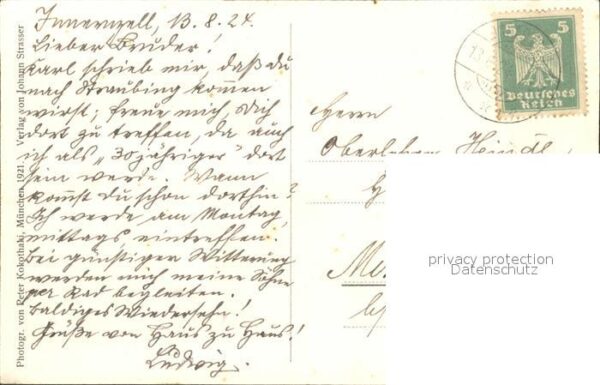 Innernzell, 13.8.24.
Lieber Bruder!
Karl schrieb mir, daß du
nach Straubing kommen
wirst; freue mich, Dich
dort zu treffen, da auch
ich als „30jähriger" dort
sein werde. Wann
kommst du schon dorthin?
Ich werde am Montag,
mittags eintreffen.
Bei günstiger Witterung
werden mich meine Söhne
per Rad begleiten.
Baldiges Wiedersehn!
Grüße von Haus zu Haus!
Ludwig.
Photogr. von Peter Kokothaki, München 1921. Verlag von Johann Strasser
5 5
Deutsches
Reich
Herrn
Oberlehrer
privacy protection
Datenschutz